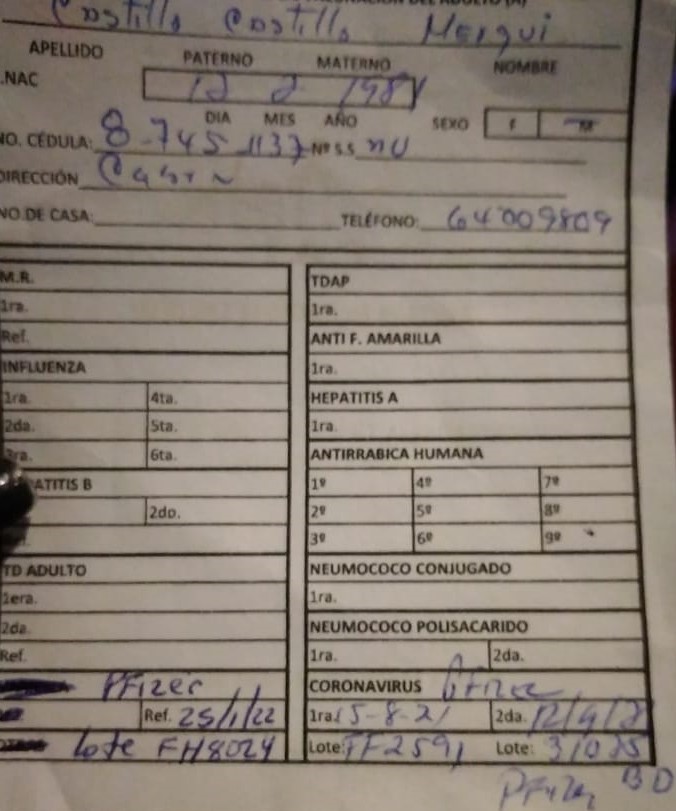 Costillo Costillo Merqui
APELLIDO PATERNO MATERNO NOMBRE
.NAC 12 2 1981
DIA MES AÑO SEXO F M
NO. CÉDULA: 8-745-1137 Nº S.S
DIRECCIÓN
NO.DE CASA: TELÉFONO: 64009809
M.R.
1ra.
Ref.
INFLUENZA
1ra. 4ta.
2da. 5ta.
3ra. 6ta.
ATITIS B
2do.
TD ADULTO
1era.
2da.
Ref.
Pfizer
Ref. 25/1/22
lote FH8024
TDAP
1ra.
ANTI F. AMARILLA
1ra.
HEPATITIS A
1ra.
ANTIRRABICA HUMANA
1º 4º 7º
2º 5º 8º
3º 6º 9º
NEUMOCOCO CONJUGADO
1ra.
NEUMOCOCO POLISACARIDO
1ra. 2da.
CORONAVIRUS Pfizer
1ra. 15-8-21 2da.
Lote: FF2591 Lote:
Pfizer